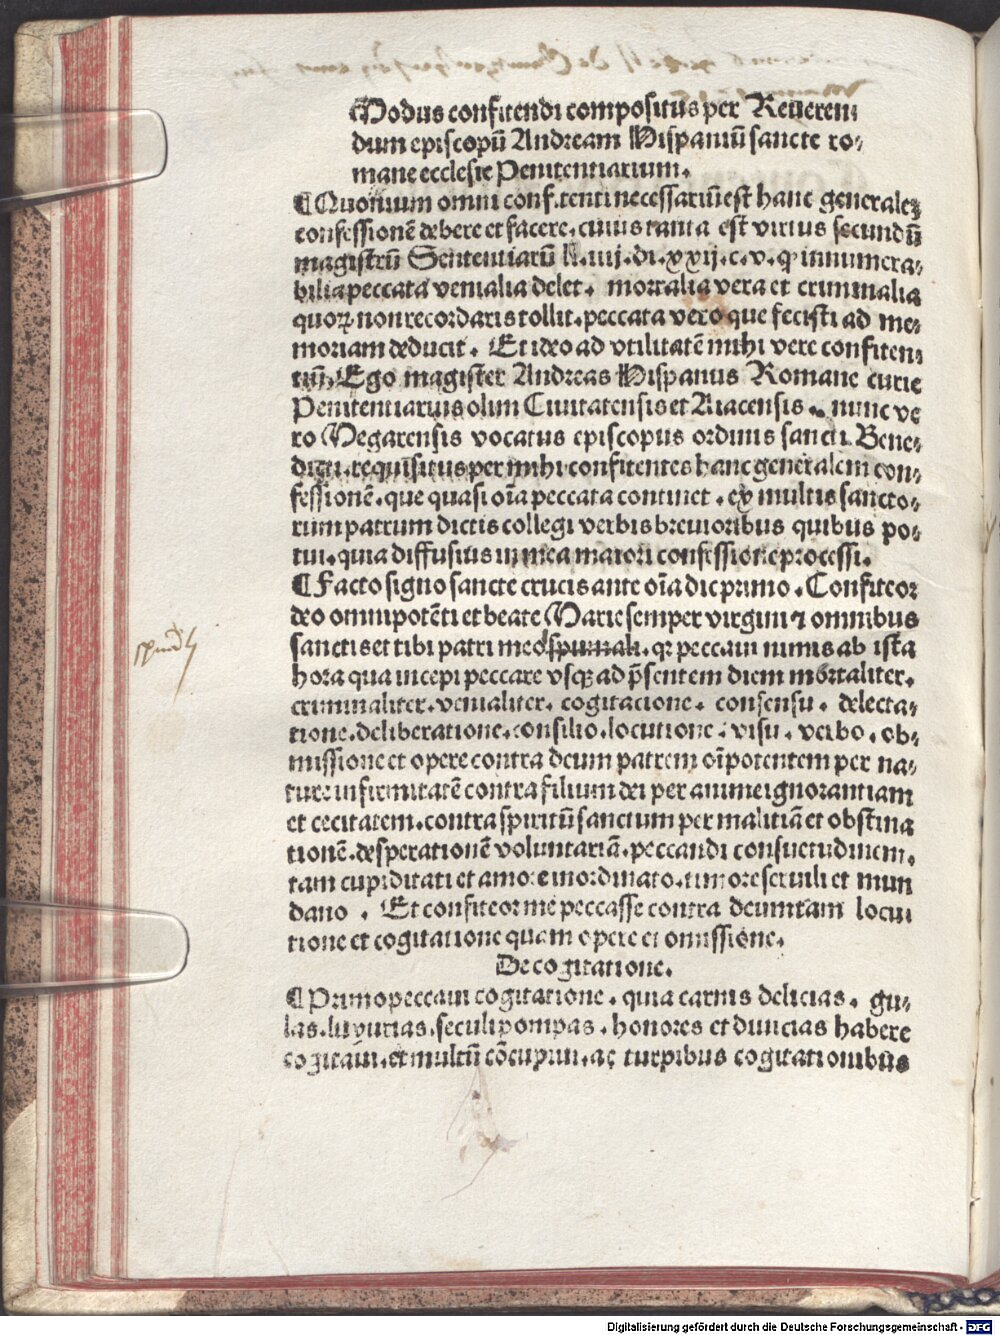 Modus confitendi compositus per Reueren-
dum episcopū Andream Hispanū sancte ro-
mane ecclesie Penitentiarium.
¶ Quoniam omni confitenti necessariū est hanc generalez
confessionē debere et facere. cuius tanta est virtus secundū
magistrū Sententiarū li. iiij. di. xxij. c. v. ꝙ innumera-
bilia peccata venialia delet. mortalia vera et criminalia
quoꝝ non recordaris tollit. peccata vero que fecisti ad me-
moriam deducit. Et ideo ad vtilitatē mihi vere confiten-
tiū. Ego magister Andreas Hispanus Romane curie
Penitentiarius olim Ciuitatensis et Aiacensis. nunc ve
ro Megarensis vocatus episcopus ordinis sancti Bene-
dicti. requisitus per mihi confitentes hanc generalem con-
fessionē. que quasi oīa peccata continet. ex multis sancto-
rum patrum dictis collegi verbis breuioribus quibus po-
tui. quia diffusius in mea maiori confessione processi.
¶ Facto signo sancte crucis ante oīa dic primo. Confiteor
deo omnipotēti et beate Marie semper virgini ⁊ omnibus
sanctis et tibi patri meo spirituali. qꝛ peccaui nimis ab ista
hora qua incepi peccare vsqꝫ ad p̄sentem diem mortaliter.
criminaliter. venialiter. cogitacione. consensu. delecta-
tione. deliberatione. consilio. locutione. visu. verbo. ob-
missione et opere contra deum patrem oīpotentem per na-
ture infirmitatē contra filium dei per anime ignorantiam
et cecitatem. contra spiritū sanctum per malitiā et obstina
tionē. desperationē voluntariā. peccandi consuetudinem.
tam cupiditati et amore inordinato. timore seruili et mun
dano. Et confiteor me peccasse contra deum tam locu
tione et cogitatione quam opere et omissione.
De cogitatione.
¶ Primo peccaui cogitatione. quia carnis delicias. gu-
las. luxurias. seculi pompas. honores et diuicias habere
cogitaui. et multū cōcupiui. ac turpibus cogitationibus
Digitalisierung gefördert durch die Deutsche Forschungsgemeinschaft - DFG